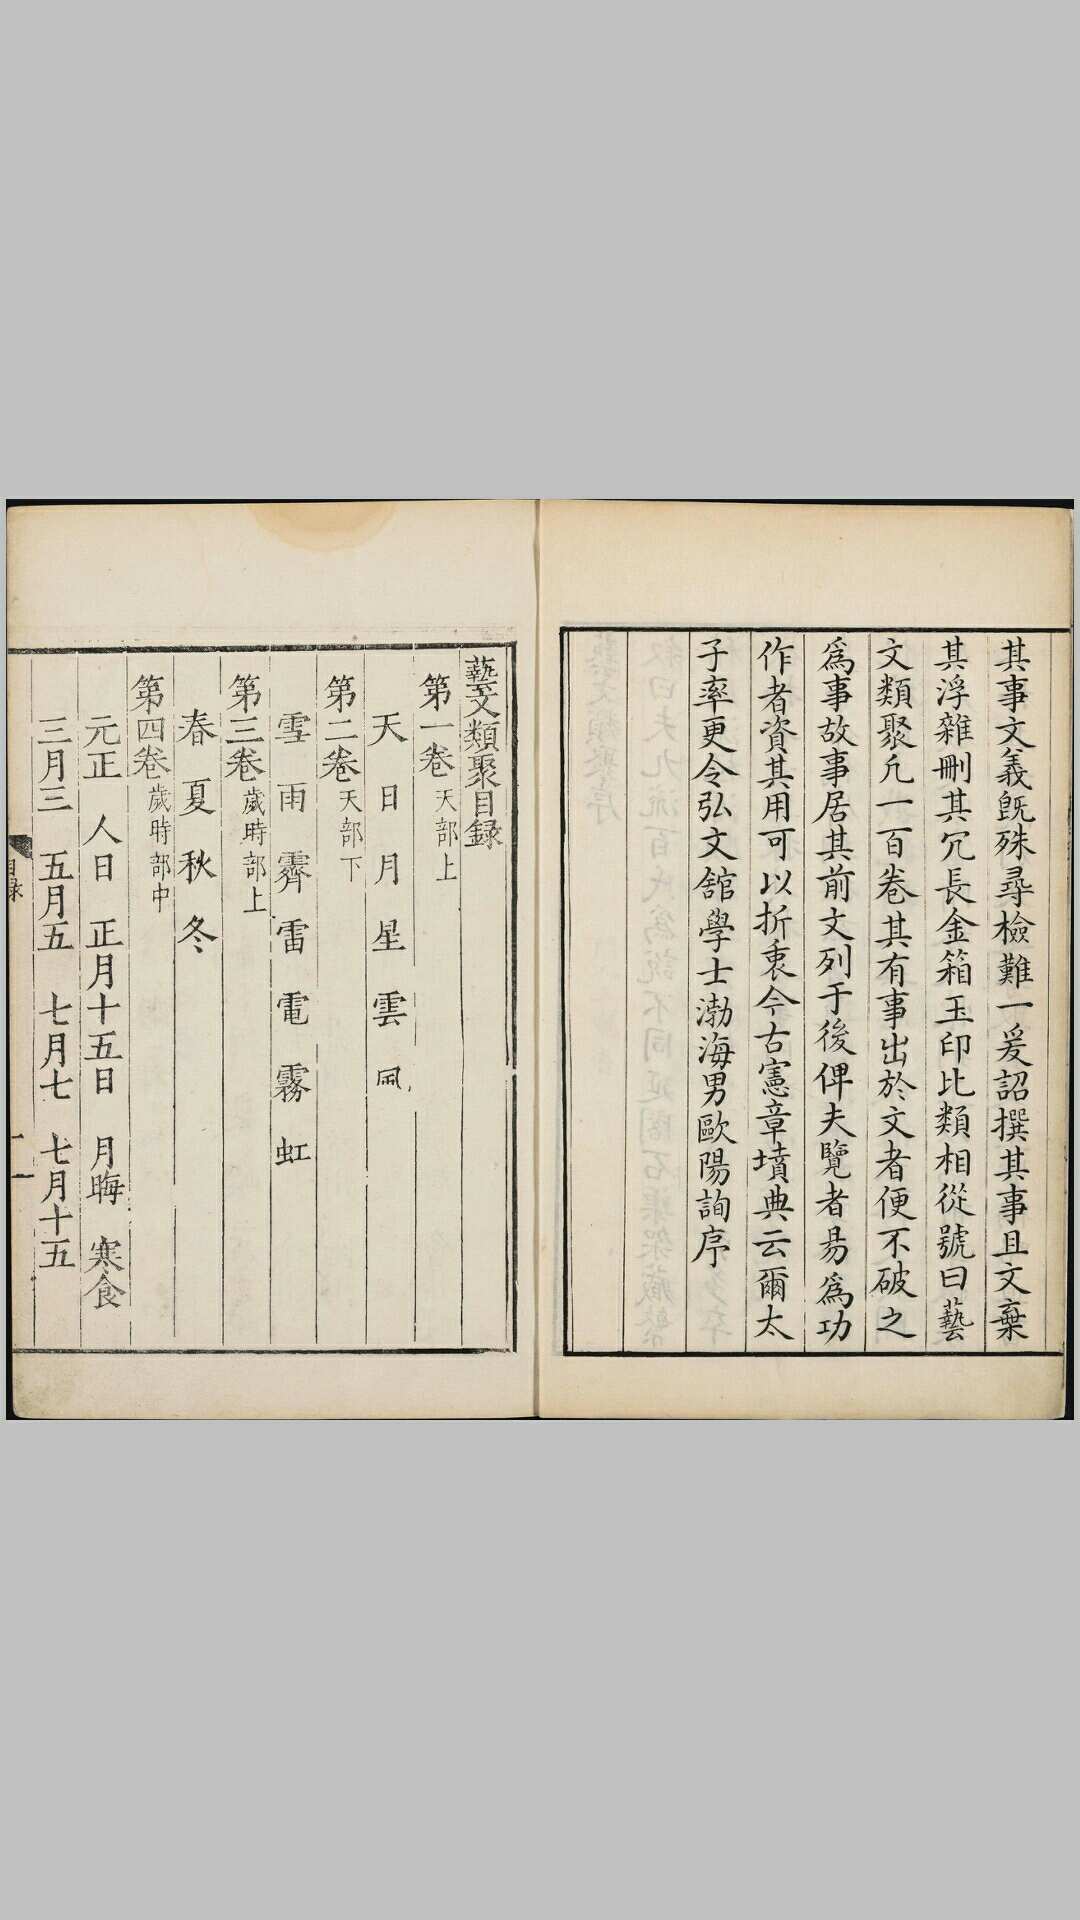 其事文義既殊尋檢難一爰詔撰其事且文棄
其浮雜刪其冗長金箱玉印比類相從號曰藝
文類聚凡一百卷其有事出於文者便不破之
爲事故事居其前文列于後俾夫覽者易爲功
作者資其用可以折衷今古憲章墳典云爾太
子率更令弘文舘學士渤海男歐陽詢序
藝文類聚目録
第一卷天部上
天 日 月 星 雲 風
第二卷天部下
雪 雨 霽 雷 電 霧 虹
第三卷歲時部上
春 夏 秋 冬
第四卷歲時部中
元正 人日 正月十五日 月晦 寒食
三月三 五月五 七月七 七月十五
目録 一